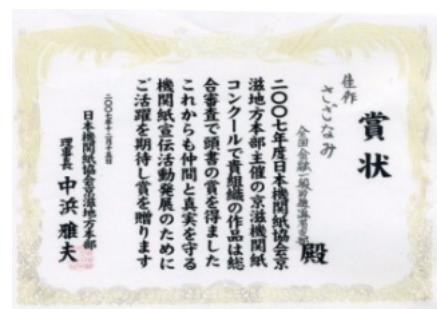 賞状
佳作
さざなみ
殿
二〇〇七年度日本機関紙協会京
滋地方本部主催の京滋機関紙
コンクールで貴組織の作品は総
合審査で頭書の賞を得ました
これからも仲間と真実を守る
機関紙宣伝活動発展のために
ご活躍を期待し賞を贈ります
二〇〇七年十二月十五日
日本機関紙協会京滋地方本部
理事長 中浜雅夫